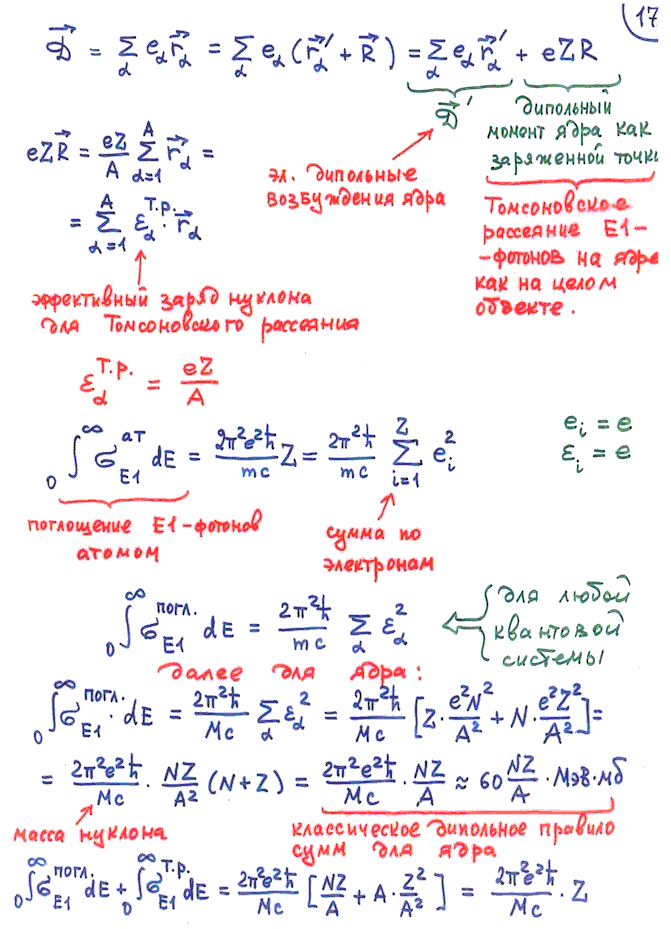 17
$\vec{D} = \sum_\alpha e_\alpha \vec{r}_\alpha = \sum_\alpha e_\alpha (\vec{r}_\alpha' + \vec{R}) = \sum_\alpha e_\alpha \vec{r}_\alpha' + eZR$
$\vec{D}'$
дипольный
момент ядра как
заряженной точки
$eZ\vec{R} = \frac{eZ}{A} \sum_{\alpha=1}^{A} \vec{r}_\alpha =$
$= \sum_{\alpha=1}^{A} \varepsilon_\alpha^{Т.р.} \cdot \vec{r}_\alpha$
эл. дипольные
возбуждения ядра
Томсоновское
рассеяние E1-
-фотонов на ядре
как на целом
объекте.
эффективный заряд нуклона
для Томсоновского рассеяния
$\varepsilon_\alpha^{Т.р.} = \frac{eZ}{A}$
$\int_0^\infty \sigma_{E1}^{ат} dE = \frac{2\pi^2 e^2 \hbar}{mc} Z = \frac{2\pi^2 \hbar}{mc} \sum_{i=1}^{Z} e_i^2$
$e_i = e$
$\varepsilon_i = e$
поглощение E1-фотонов
атомом
сумма по
электронам
$\int_0^\infty \sigma_{E1}^{погл.} dE = \frac{2\pi^2 \hbar}{mc} \sum_\alpha \varepsilon_\alpha^2$
для любой
квантовой
системы
далее для ядра:
$\int_0^\infty \sigma_{E1}^{погл.} \cdot dE = \frac{2\pi^2 \hbar}{Mc} \sum_\alpha \varepsilon_\alpha^2 = \frac{2\pi^2 \hbar}{Mc} \left[ Z \cdot \frac{e^2 N^2}{A^2} + N \cdot \frac{e^2 Z^2}{A^2} \right] =$
$= \frac{2\pi^2 e^2 \hbar}{Mc} \cdot \frac{NZ}{A^2} (N+Z) = \frac{2\pi^2 e^2 \hbar}{Mc} \cdot \frac{NZ}{A} \approx 60 \frac{NZ}{A} \cdot Мэв \cdot мб$
масса нуклона
классическое дипольное правило
сумм для ядра
$\int_0^\infty \sigma_{E1}^{погл.} dE + \int_0^\infty \sigma_{E1}^{Т.р.} dE = \frac{2\pi^2 e^2 \hbar}{Mc} \left[ \frac{NZ}{A} + A \cdot \frac{Z^2}{A^2} \right] = \frac{2\pi^2 e^2 \hbar}{Mc} \cdot Z$